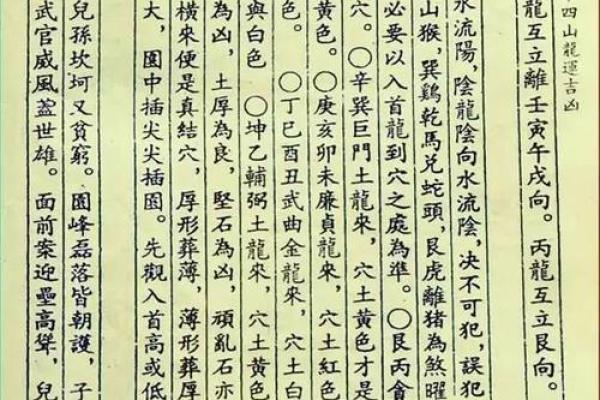 四山龍運吉凶
龍互立離壬寅午戌向。丙龍互立艮向。
水流陽，陰龍陰向水流陰，決不可犯，誤犯
山猴，巽鷄乾馬兌蛇頭，艮虎離猪為煞曜
必要以入首龍到穴之處為準。〇艮丙貪
穴。〇辛巽巨門土龍來，穴土黃色才是
黃色。〇庚亥卯未廉貞龍來，穴土紅色
色。〇丁巳酉丑武曲金龍來，穴土白
與白色〇坤乙輔弼土龍來，穴土黃色
為凶，土厚為良，堅石為凶，頑亂石亦
橫來便是真結穴，厚形葬薄，薄形葬厚
大，圓中插尖尖插圓。先觀入首高或低
兒孫坎坷又貧窮。圓峰磊落皆朝護，子
武官威風蓋世雄。面前案迎壘高聳，兒